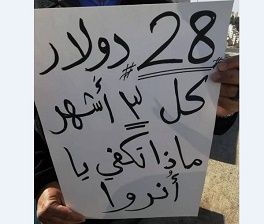 28 دولار
# كل ٣ أشهر #
ماذا تكفي يا
أنروا